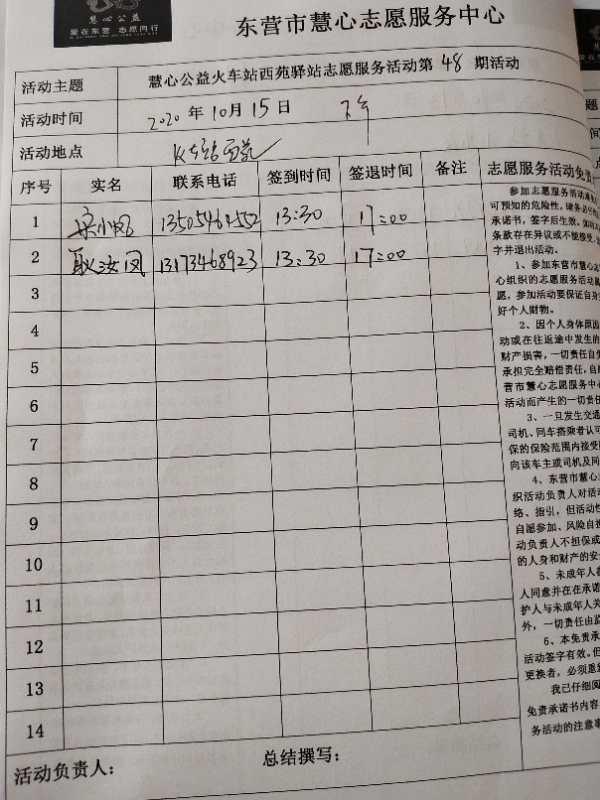 慧心公益
爱在东营 志愿同行
东营市慧心志愿服务中心
活动主题 慧心公益火车站西苑驿站志愿服务活动第 48 期活动
活动时间 2020 年 10 月 15 日 下午
活动地点 火车站西苑
序号 实名 联系电话 签到时间 签退时间 备注 志愿服务活动免责
1 小凤 13:30 17:00
2 耿汝凤 13173468923 13:30 17:00
3
4
5
6
7
8
9
10
11
12
13
14
活动负责人： 总结撰写：
参加志愿服务活动
可预知的危险性，
承诺书，签字后生效。
条款存在异议或不能接受，
字并退出活动。
1、参加东营市慧心志
心组织的志愿服务活动
愿，参加活动要保证自身
好个人财物。
2、因个人身体原因
动或在往返途中发生的
财产损害，一切责任自
承担完全赔偿责任，自
营市慧心志愿服务中心
活动而产生的一切责任
3、一旦发生交通
司机、同车搭乘者认可
保的保险范围内接受
向该车主或司机及同
4、东营市慧心
织活动负责人对活动
络、指引，但活动性
自愿参加、风险自担
动负责人不担保或
的人身和财产的安
5、未成年人
人同意并在在承诺
护人与未成年人关
外，一切责任由监
6、本免责承
活动签字有效。但
更换者，必须重
我已仔细阅
免责承诺书内容
务活动的注意事